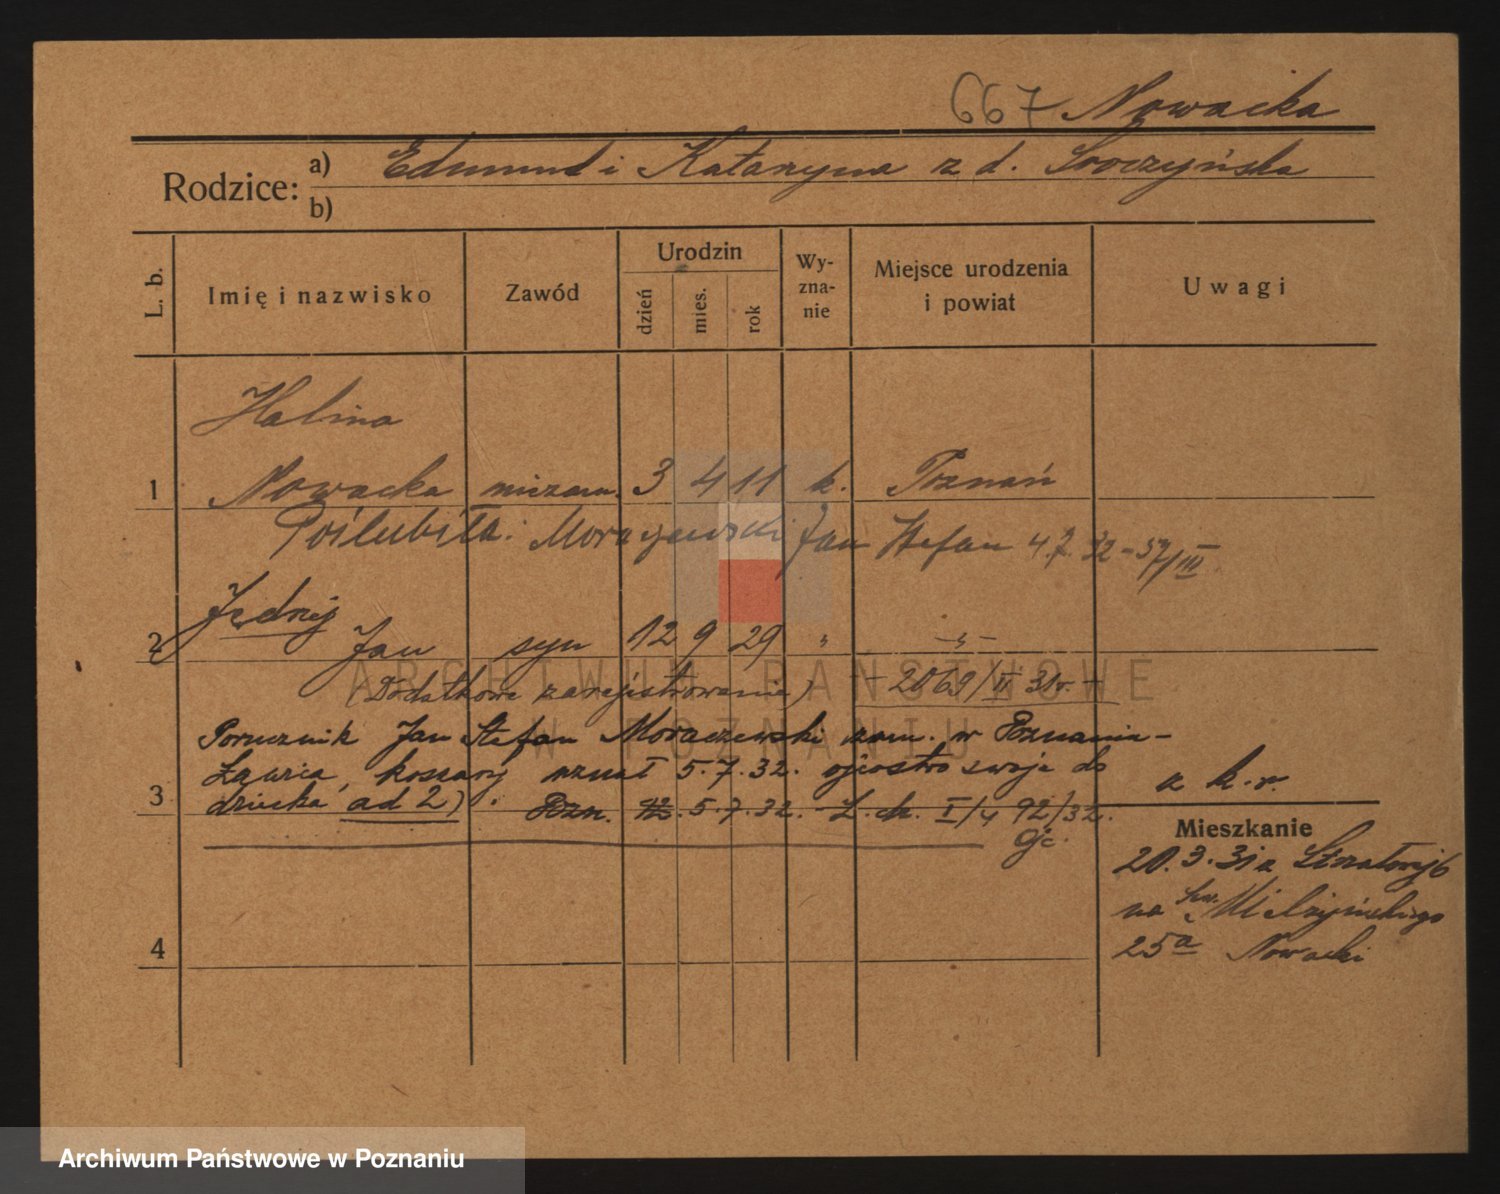 667 Nowacka
Rodzice: a) Edmund i Katarzyna z d. Sroczyńska
b)
L. b. Imię i nazwisko Zawód Urodzin dzień mies. rok Wyznanie Miejsce urodzenia i powiat Uwagi
Halina
1 Nowacka niezam. 3 4 11 k. Poznań
Poślubiła: Moraczewski Jan Stefan 4.7.32 - 57/III
Jędrzej
2 Jan syn 12 9 29 " -"-
(Dodatkowe zarejestrowanie) - 2069/II 31r. -
Porucznik Jan Stefan Moraczewski zam. w Poznaniu-
Ławica, koszary uznał 5.7.32. ojcostwo swoje do
3 dziecka ad 2) Pozn. 5.7.32. I/4 92/32.
a k. r.
Mieszkanie
20.3.31 z
na Mielżyńskiego
25a Nowacki
4
ARCHIWUM PAŃSTWOWE
W POZNANIU
Archiwum Państwowe w Poznaniu